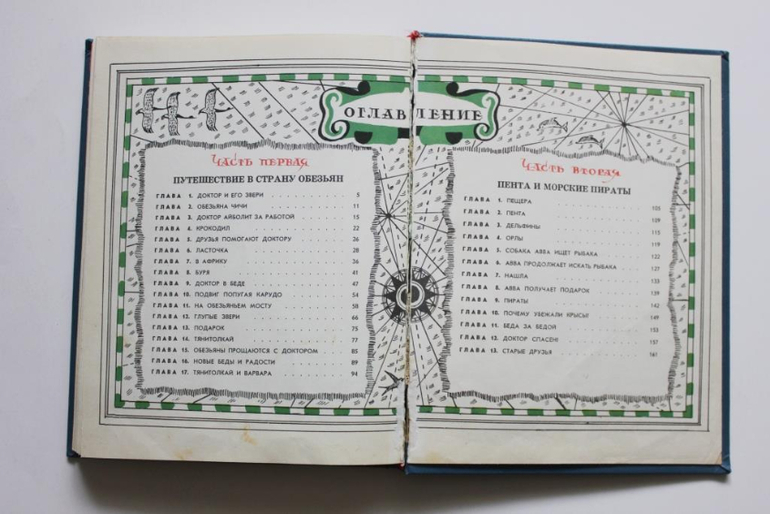 ОГЛАВЛЕНИЕ
Часть первая
ПУТЕШЕСТВИЕ В СТРАНУ ОБЕЗЬЯН
ГЛАВА 1. ДОКТОР И ЕГО ЗВЕРИ 5
ГЛАВА 2. ОБЕЗЬЯНА ЧИЧИ 11
ГЛАВА 3. ДОКТОР АЙБОЛИТ ЗА РАБОТОЙ 15
ГЛАВА 4. КРОКОДИЛ 22
ГЛАВА 5. ДРУЗЬЯ ПОМОГАЮТ ДОКТОРУ 26
ГЛАВА 6. ЛАСТОЧКА 28
ГЛАВА 7. В АФРИКУ 36
ГЛАВА 8. БУРЯ 41
ГЛАВА 9. ДОКТОР В БЕДЕ 47
ГЛАВА 10. ПОДВИГ ПОПУГАЯ КАРУДО 54
ГЛАВА 11. ПО ОБЕЗЬЯНЬЕМУ МОСТУ 58
ГЛАВА 12. ГЛУПЫЕ ЗВЕРИ 66
ГЛАВА 13. ПОДАРОК 75
ГЛАВА 14. ТЯНИТОЛКАЙ 77
ГЛАВА 15. ОБЕЗЬЯНЫ ПРОЩАЮТСЯ С ДОКТОРОМ 85
ГЛАВА 16. НОВЫЕ БЕДЫ И РАДОСТИ 89
ГЛАВА 17. ТЯНИТОЛКАЙ И ВАРВАРА 94
Часть вторая
ПЕНТА И МОРСКИЕ ПИРАТЫ
ГЛАВА 1. ПЕЩЕРА 105
ГЛАВА 2. ПЕНТА 109
ГЛАВА 3. ДЕЛЬФИНЫ 115
ГЛАВА 4. ОРЛЫ 119
ГЛАВА 5. СОБАКА АВВА ИЩЕТ РЫБАКА 122
ГЛАВА 6. АВВА ПРОДОЛЖАЕТ ИСКАТЬ РЫБАКА 127
ГЛАВА 7. НАШЛА 133
ГЛАВА 8. АВВА ПОЛУЧАЕТ ПОДАРОК 139
ГЛАВА 9. ПИРАТЫ 142
ГЛАВА 10. ПОЧЕМУ УБЕЖАЛИ КРЫСЫ? 149
ГЛАВА 11. БЕДА ЗА БЕДОЙ 153
ГЛАВА 12. ДОКТОР СПАСЕН! 157
ГЛАВА 13. СТАРЫЕ ДРУЗЬЯ 161